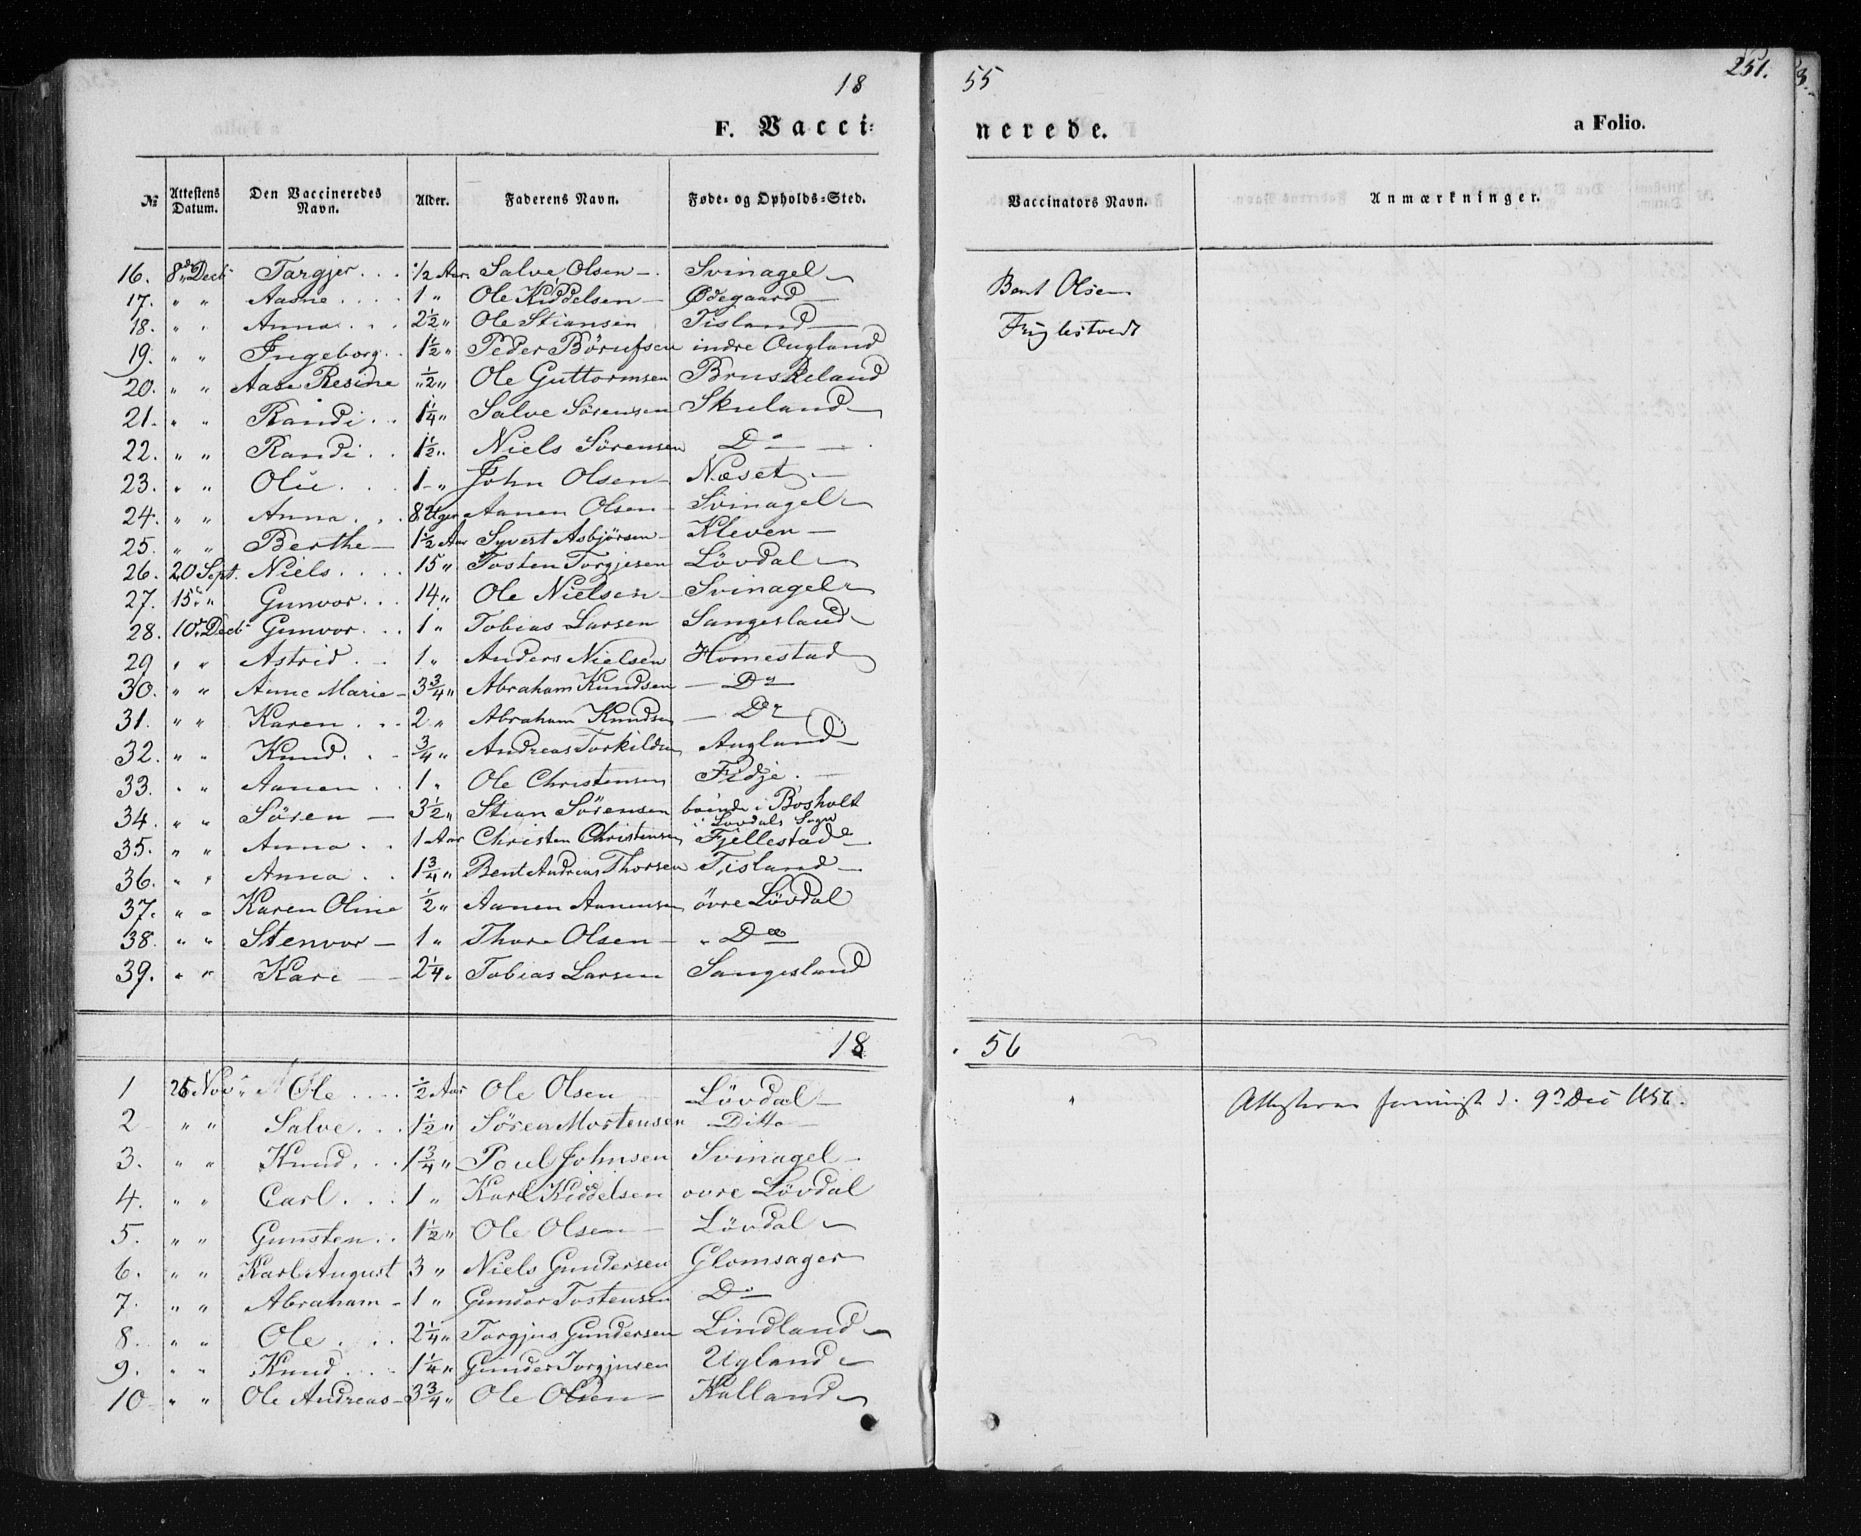 18 55 251.
F. Vacci= nerede. a Folio.
№ Attestens Datum. Den Vaccineredes Navn. Alder. Faderens Navn. Føde- og Opholds-Sted. Vaccinators Navn. Anmærkninger.
16. 8de Decb Targjer ½ Aar Salve Olsen Svinagel Bent Olsen
17. " " Aasne 1 " Ole Kiddelsen Ødegaard
18. " " Anna 2½ " Ole Stiansen Tisland Fuglestvedt
19. " " Ingeborg 1½ " Peder Börufsen indre Ougland
20. " " Aase Resine ½ " Ole Guttormsen Bruskeland
21. " " Randi 1¼ " Salve Sörensen Skuland
22. " " Randi 1½ " Niels Sörensen Do
23. " " Olü 1 " John Olsen Næset
24. " " Anna 8 Uger Aanen Olsen Svinagel
25. " " Berthe 1½ Aar Syvert Asbjörsen Kleven
26. 20 Sept. Niels 15 " Tosten Torgjesen Lövdal
27. 15 " " Gunvor 14 " Ole Nielsen Svinagel
28. 10 Decb Gunvor 1 " Tobias Larsen Sangesland
29 " " Astrid 1 " Anders Nielsen Homestad
30. " " Anne Marie 3¾ " Abraham Knudsen Do
31. " " Karen 2 " Abraham Knudsen Do
32. " " Knud ¾ " Andreas Torkildsen Augland
33. " " Aanen 1 " Ole Christensen Fidje
34. " " Sören 3½ " Stian Sörensen boende i Bosholt
i Lövdals Sogn
35. " " Anna 1 Aar Christen Christensen Fjellestad
36. " " Anna 1¾ " Bent Andreas Thorsen Tisland
37. " " Karen Oline ½ " Aanen Aanensen övre Lövdal
38. " " Stenvor 1 " Thore Olsen " Do
39. " " Kari 2¼ " Tobias Larsen Sangesland
18 56
1 26 Nov Ole ½ Aar Ole Olsen Lövdal " 9 Dec 1856.
2 " " Salve 1½ " Sören Mortensen Ditto
3. " " Knud 1¾ " Poul Johnsen Svinagel
4. " " Carl 1 " Karl Kiddelsen ovre Lövdal
5. " " Gunsten 1½ " Ole Olsen Lövdal
6. " " Karl August 3 " Niels Gundersen Glomsager
7. " " Abraham 1 " Gunder Tostensen Do
8. " " Ole 2¼ " Torgjus Gundersen Lindland
9. " " Knud 1¼ " Gunder Torgjusen Ugland
10 " " Ole Andreas 3¾ " Ole Olsen Kalland